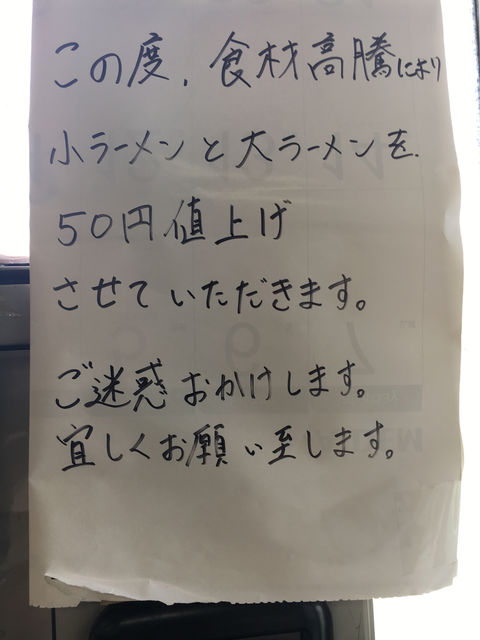 この度、食材高騰により
小ラーメンと大ラーメンを
50円値上げ
させていただきます。
ご迷惑おかけします。
宜しくお願い至します。